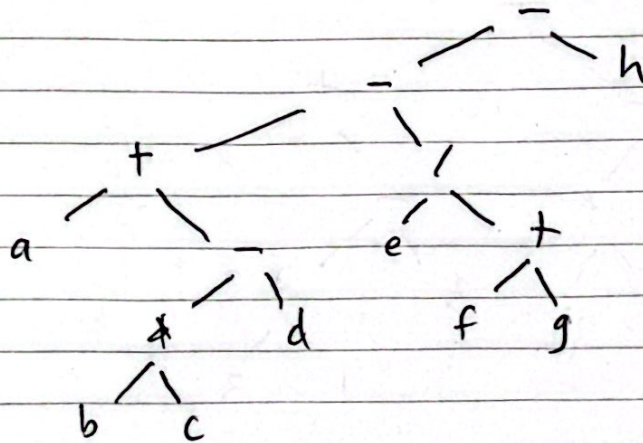 -
- h
+ /
a - e +
* d f g
b c